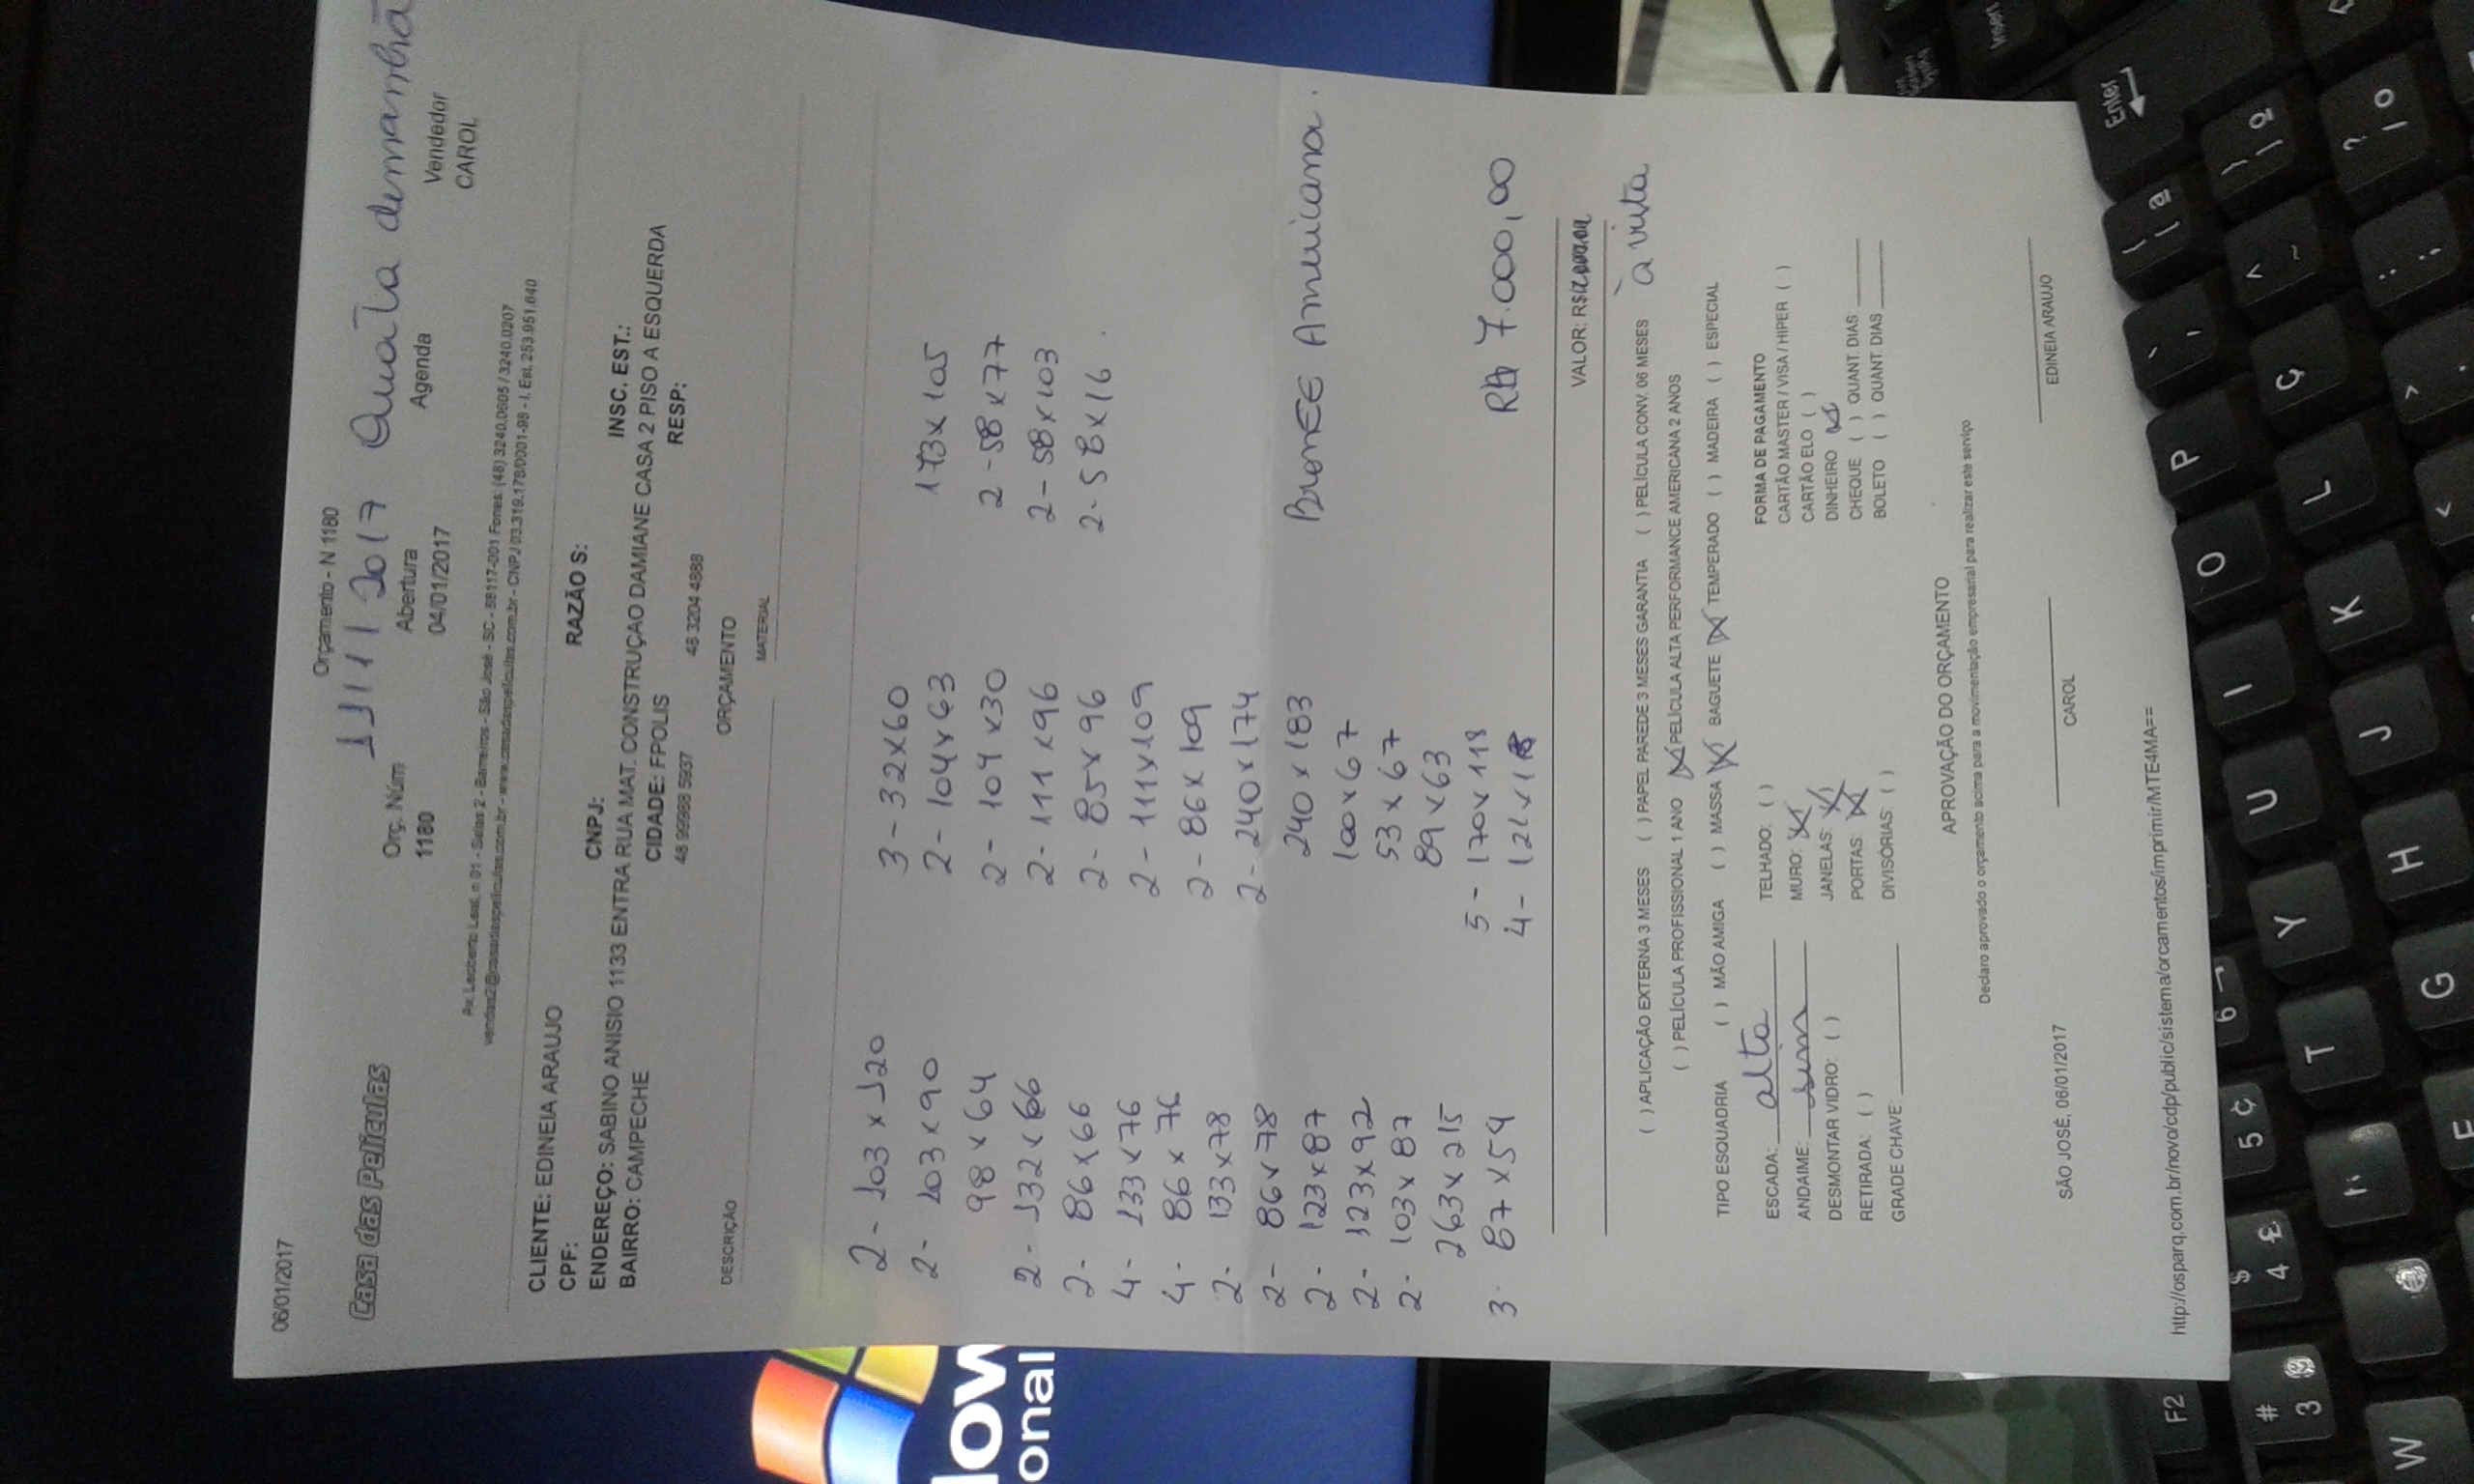 06/01/2017
Orçamento - N 1180
11/1/2017 Quarta demanhã
Casa das Películas
Orç. Núm
Abertura
Agenda
Vendedor
1180
04/01/2017
CAROL
Av. Leoberto Leal, n 01 - Salas 2 - Barreiros - São José - SC - 88117-001 Fones: (48) 3240.0605 / 3240.0207
vendas2@casadaspeliculas.com.br - www.casadaspeliculas.com.br - CNPJ 03.319.178/0001-98 - I. Est. 253.951.640
CLIENTE: EDINEIA ARAUJO
RAZÃO S:
CPF:
CNPJ:
INSC. EST.:
ENDEREÇO: SABINO ANISIO 1133 ENTRA RUA MAT. CONSTRUÇAO DAMIANE CASA 2 PISO A ESQUERDA
BAIRRO: CAMPECHE
CIDADE: FPOLIS
RESP:
48 99998 5937
48 3204 4888
ORÇAMENTO
DESCRIÇÃO
MATERIAL
2 - 103 x 120
2 - 103 x 90
98 x 64
2 - 132 x 66
2 - 86 x 66
4 - 133 x 76
4 - 86 x 76
2 - 133 x 78
2 - 86 x 78
2 - 123 x 87
2 - 123 x 92
2 - 103 x 87
263 x 215
3 - 87 x 54
3 - 32 x 60
2 - 104 x 63
2 - 104 x 30
2 - 111 x 96
2 - 85 x 96
2 - 111 x 109
2 - 86 x 109
2 - 240 x 174
240 x 183
100 x 67
53 x 67
89 x 63
5 - 170 x 118
173 x 105
2 - 58 x 77
2 - 58 x 103
2 - 58 x 16.
BronzE Americana.
R$ 7.000,00
VALOR: R$
à vista
( ) APLICAÇÃO EXTERNA 3 MESES ( ) PAPEL PAREDE 3 MESES GARANTIA ( ) PELÍCULA CONV. 06 MESES
( ) PELÍCULA PROFISSIONAL 1 ANO (X) PELÍCULA ALTA PERFORMANCE AMERICANA 2 ANOS
TIPO ESQUADRIA ( ) MÃO AMIGA ( ) MASSA (X) BAGUETE (X) TEMPERADO ( ) MADEIRA ( ) ESPECIAL
ESCADA: alta
ANDAIME: sim
DESMONTAR VIDRO: ( )
RETIRADA: ( )
GRADE CHAVE:
TELHADO: ( )
MURO: (X)
JANELAS: (X)
PORTAS: (X)
DIVISÓRIAS: ( )
FORMA DE PAGAMENTO
CARTÃO MASTER / VISA / HIPER ( )
CARTÃO ELO ( )
DINHEIRO (X)
CHEQUE ( ) QUANT. DIAS:
BOLETO ( ) QUANT. DIAS
APROVAÇÃO DO ORÇAMENTO
Declaro aprovado o orçamento acima para a movimentação empresarial para realizar este serviço
SÃO JOSÉ, 06/01/2017
CAROL
EDINEIA ARAUJO
http://osparq.com.br/novo/cdp/public/sistema/orcamentos/imprimir/MTE4MA==
onal
Enter
Insert
F2
# 3
$ 4 £
5 ¢
6
W
E
T
Y
U
I
O
P
G
H
J
K
L
Ç